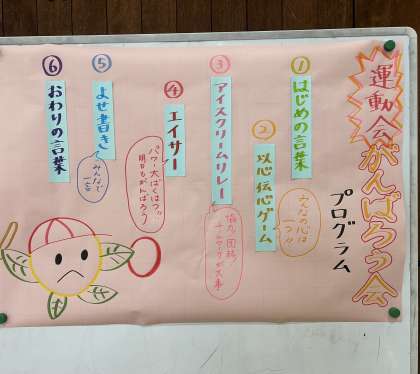 運動会がんばろう会
プログラム
①はじめの言葉
みんなの心は
一つ!!
②以心伝心ゲーム
③アイスクリームリレー
協力、団結、
チームワークが大事
④エイサー
パワー大ばくはつ!!
明日もがんばろう
⑤よせ書き
みんなで
一言
⑥おわりの言葉